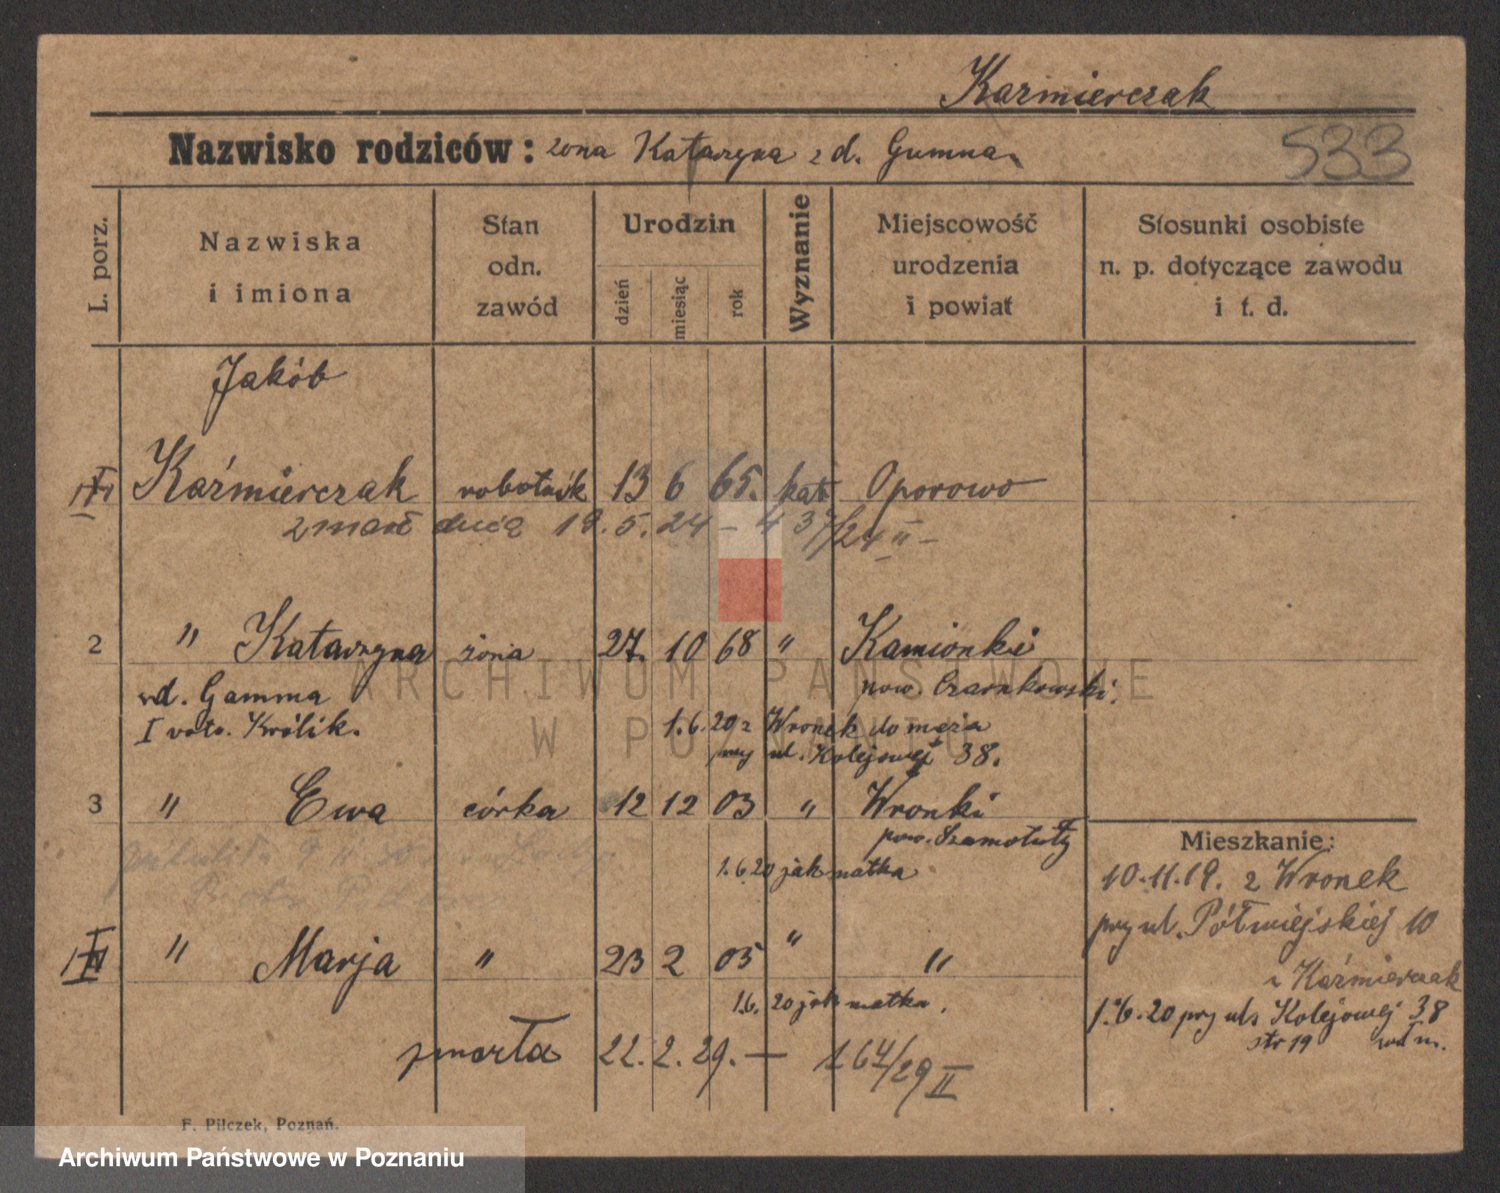 Kaźmierczak
Nazwisko rodziców: żona Katarzyna z d. Gumna
533
L. porz.
Nazwiska
i imiona
Stan
odn.
zawód
Urodzin
dzień
miesiąc
rok
Wyznanie
Miejscowość
urodzenia
i powiat
Stosunki osobiste
n. p. dotyczące zawodu
i t. d.
Jakób
Kaźmierczak robotnik 13 6 65. kat Oporowo
zmarł dnia 19.5.24 – 437/24 II –
2 " Katarzyna żona 27. 10 68 " Kamionki
wd. Gamma pow. Czarnkowski.
I voto. Królik. 1.6.20 z Wronek do męża
przy ul. Kolejowej 38.
3 " Ewa córka 12 12 03 " Wronki
pow. Szamotuły
1.6.20 jak matka
Mieszkanie:
10.11.19. z Wronek
przy ul. Półwiejskiej 10
Kaźmierczak
1.6.20 przy ul. Kolejowej 38
str 19
" Marja " 23 2 05 " "
1.6.20 jak matka.
zmarła 22.2.29. — 164/29 II
F. Pilczek, Poznań.
ARCHIWUM PAŃSTWOWE
W POZNANIU
Archiwum Państwowe w Poznaniu